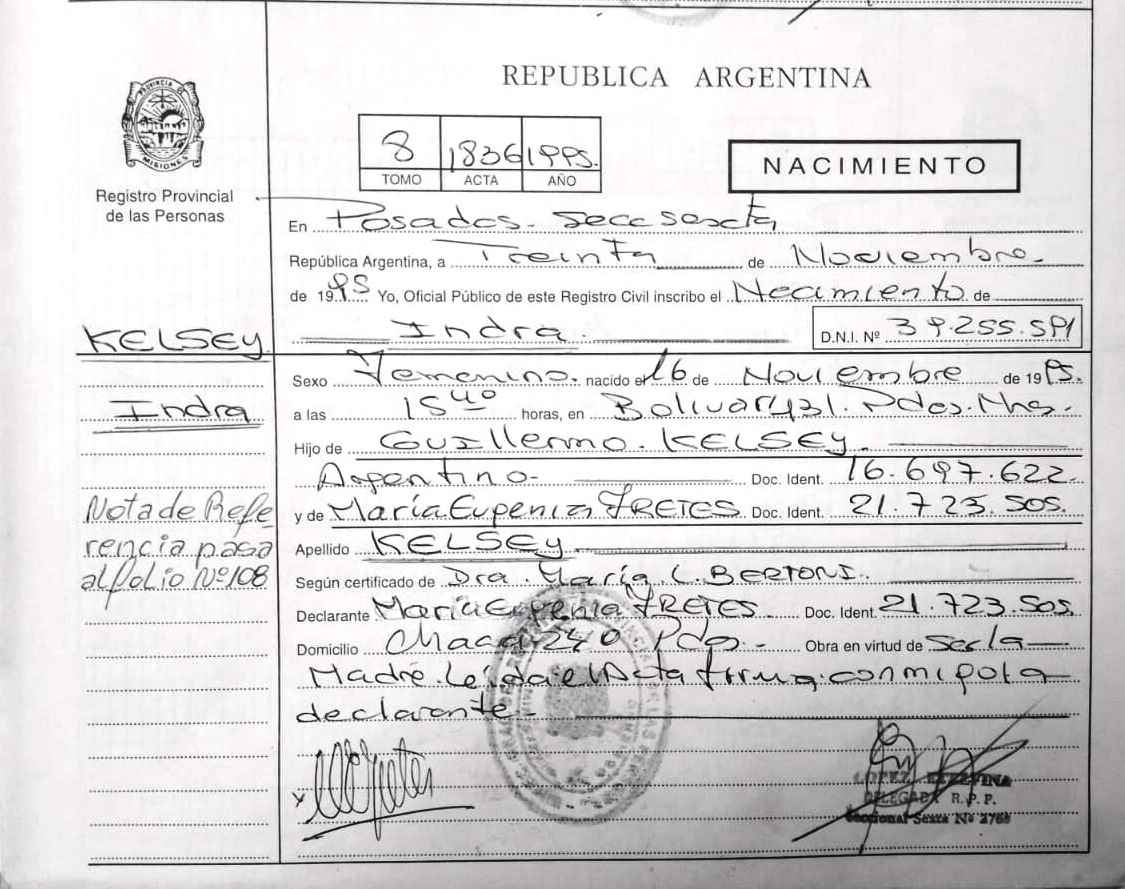 REPUBLICA ARGENTINA
PROVINCIA DE MISIONES
Registro Provincial
de las Personas
8 1836 1995.
TOMO ACTA AÑO
NACIMIENTO
En Posadas. Secc sexta
República Argentina, a Treinta de Noviembre.
de 1995 Yo, Oficial Público de este Registro Civil inscribo el Nacimiento de
Indra. D.N.I. Nº 39.255.591
KELSEY
Indra
Nota de Refe
rencia pasa
al folio Nº 108
Sexo Femenino. nacido el 16 de Noviembre de 1995.
a las 15 40 horas, en Bolivar y 3 . Pdas. Mnes.
Hijo de Guillermo. KELSEY.
Argentino. Doc. Ident. 16.697.622.
y de María Eugenia FRETES. Doc. Ident. 21.723.505.
Apellido KELSEY
Según certificado de Dra. María L. BERTONI.
Declarante María Eugenia FRETES. Doc. Ident. 21.723.505.
Domicilio 240 Pdas. Obra en virtud de Ser la
Madre. Leída el Acta firma conmigo la
declarante.
LOPEZ, ETELVINA
DELEGADA R. P. P.
Seccional Sexta Nº 2768